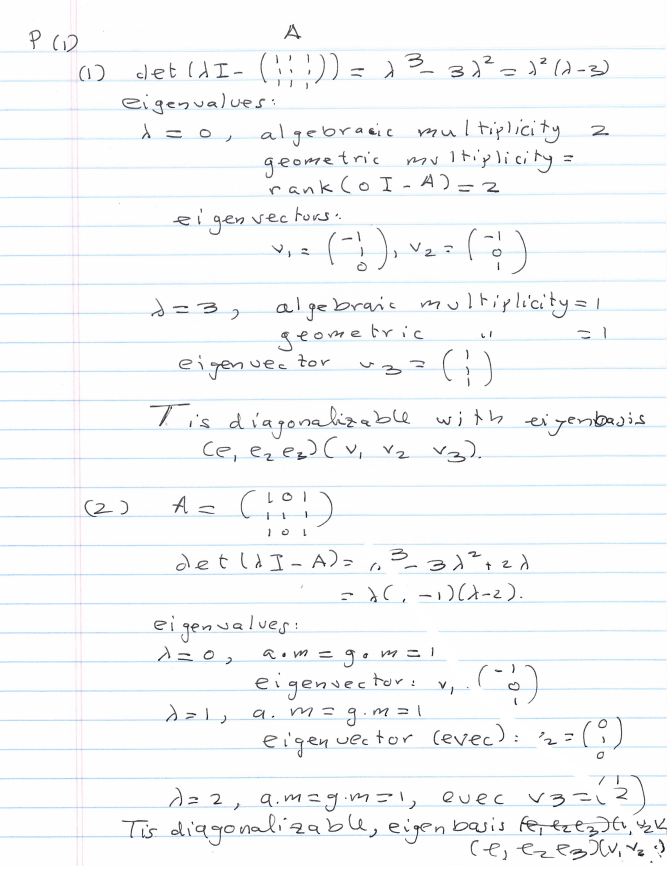 P (1)
A
(1) det (λI - (1 1 1 / 1 1 1 / 1 1 1)) = λ³ - 3λ² = λ²(λ-3)
eigenvalues:
λ = 0, algebraic multiplicity 2
geometric multiplicity =
rank (0 I - A) = 2
eigenvectors:
v₁ = (-1 / 1 / 0), v₂ = (-1 / 0 / 1)
λ = 3, algebraic multiplicity = 1
geometric " = 1
eigenvector v₃ = (1 / 1 / 1)
T is diagonalizable with eigenbasis
(e₁ e₂ e₃)(v₁ v₂ v₃).
(2) A = (1 0 1 / 1 1 1 / 1 0 1)
det (λI - A) = ³ - 3λ² + 2λ
= λ( -1)(λ-2).
eigenvalues:
λ = 0, a.m = g.m = 1
eigenvector: v₁ (-1 / 0 / 1)
λ = 1, a.m = g.m = 1
eigenvector (evec): ₂ = (0 / 1 / 0)
λ = 2, a.m = g.m = 1, evec v₃ = (1 / 2
T is diagonalizable, eigenbasis (e₁ e₂ e₃)(v₁ v₂ v
(e₁ e₂ e₃)(v₁ v₂ )